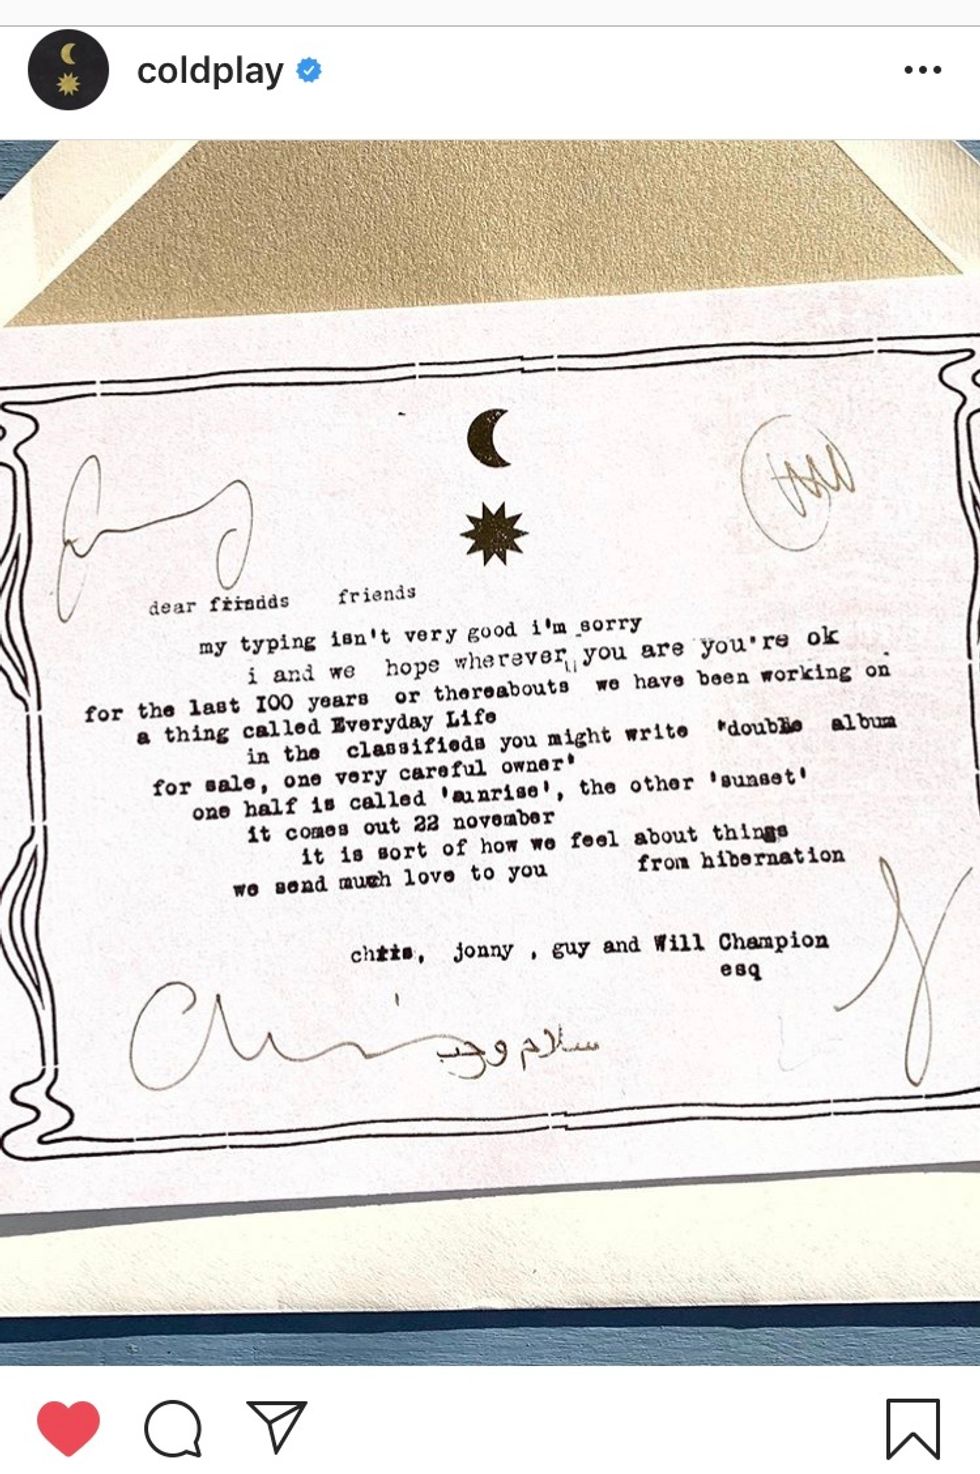 coldplay
dear friends friends
my typing isn't very good i'm sorry
i and we hope wherever you are you're ok
for the last I00 years or thereabouts we have been working on
a thing called Everyday Life
in the classifieds you might write 'double album
for sale, one very careful owner'
one half is called 'sunrise', the other 'sunset'
it comes out 22 november
it is sort of how we feel about things
we send much love to you from hibernation
chris, jonny , guy and Will Champion
esq
Chris
سلام وحب